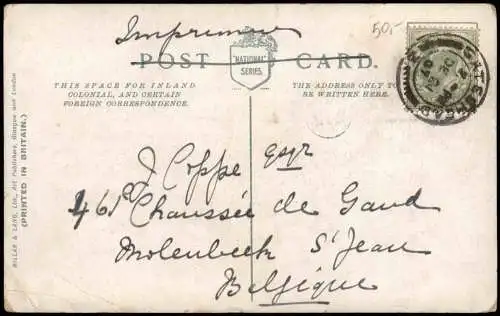 Imprimé
50,-
POST CARD.
"NATIONAL" SERIES.
THIS SPACE FOR INLAND
COLONIAL, AND CERTAIN
FOREIGN CORRESPONDENCE.
THE ADDRESS ONLY TO
BE WRITTEN HERE.
MILLAR & LANG, Ltd., Art Publishers, Glasgow and London
(PRINTED IN BRITAIN.)
J. Coppe Esqr
461 Chaussée de Gand
Molenbeek St Jean
Belgique